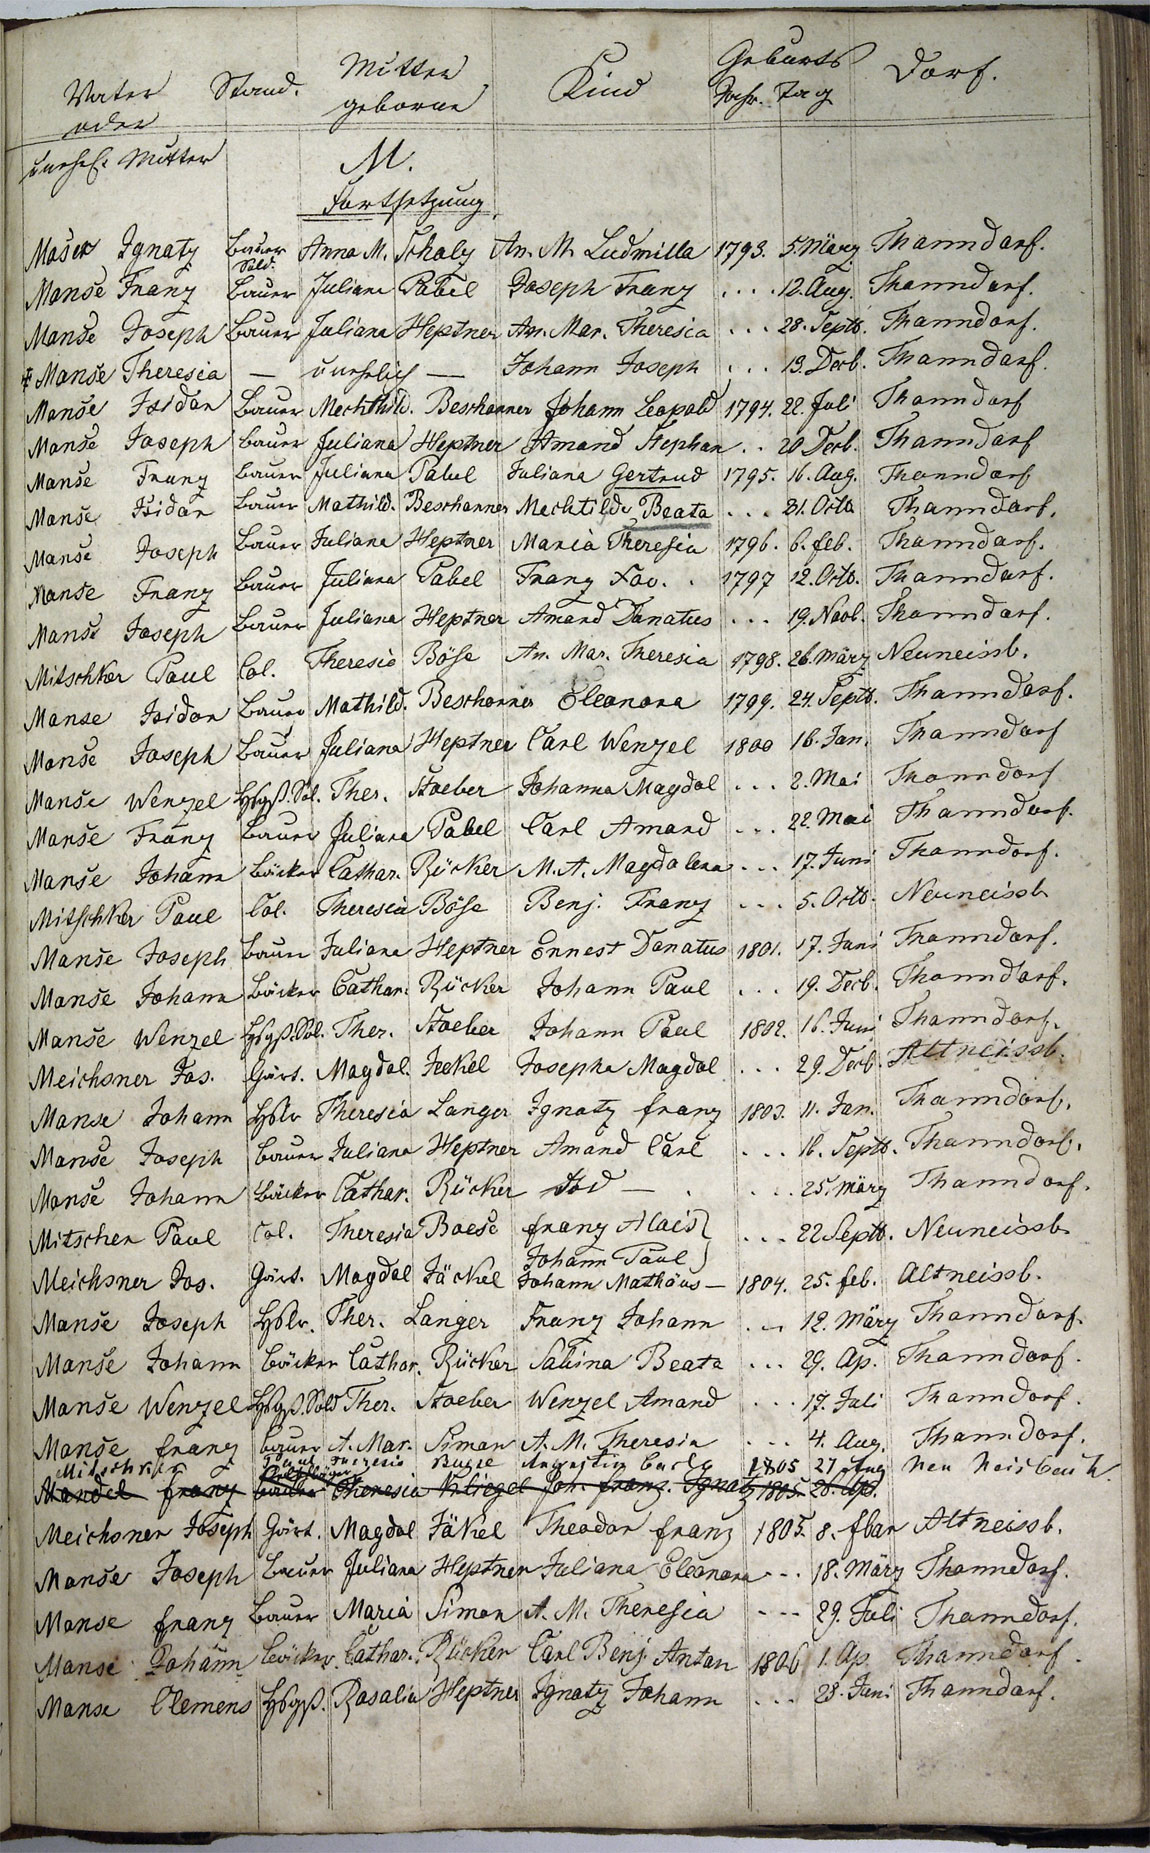 Vater Stand. Mutter Kind Geburts Dorf.
oder geborne Jahr. Tag
unehel. Mutter M.
Fortsetzung.
Maser Ignatz Bauer Anna M. Schaly An. M. Ludmilla 1793. 5. März Thanndorf.
Sold.
Manse Franz Bauer Juliana Pabel Joseph Franz . . . 12. Aug. Thanndorf.
Manse Joseph Bauer Juliana Heptner An. Mar. Theresia . . . 28. Septb. Thanndorf.
Manse Theresia — unehelich — Johann Joseph . . . 13. Decb. Thanndorf.
Manse Isidor Bauer Mechthild. Beschorner Johann Leopold 1794. 22. Juli Thanndorf
Manse Joseph Bauer Juliana Heptner Amand Stephan . . 20 Decb. Thanndorf
Manse Franz Bauer Juliana Pabel Juliana Gertrud 1795. 16. Aug. Thanndorf
Manse Isidor Bauer Mathild. Beschorner Mechtilde Beata . . . 31. Octb Thanndorf.
Manse Joseph Bauer Juliana Heptner Maria Theresia 1796. 6. feb. Thanndorf.
Manse Franz Bauer Juliana Pabel Franz Xav. . 1797 12. Octb. Thanndorf.
Manse Joseph Bauer Juliana Heptner Amand Donatus . . . 19. Novb. Thanndorf.
Mitschker Paul Col. Theresie Böse An. Mar. Theresia 1798. 26. März Neuneissb.
Manse Isidor Bauer Mathild. Beschorner Eleonora 1799. 24. Septb. Thanndorf.
Manse Joseph Bauer Juliana Heptner Carl Wenzel 1800 16. Jan. Thanndorf
Manse Wenzel Hsgß. Sol. Ther. Stoeber Johanna Magdal . . . 2. Mai Thanndorf
Manse Franz Bauer Juliana Pabel Carl Amand . . . 22. Mai Thanndorf.
Manse Johann Bäcker Cathar. Rücker M. A. Magdalena . . . 17. Juni Thanndorf.
Mitschker Paul Col. Theresia Böse Benj. Franz . . . 5. Octb. Neuneissb
Manse Joseph Bauer Juliana Heptner Ernest Donatus 1801. 17. Juni Thanndorf.
Manse Johann Bäcker Cathar. Rücker Johann Paul . . . 19. Decb. Thanndorf.
Manse Wenzel Hsgß. Sol. Ther. Stoeber Johann Paul 1802. 16. Juni Thanndorf.
Meichsner Jos. Gärt. Magdal. Jeckel Josepha Magdal . . . 29. Decb. Altneissb.
Manse Johann Hslr Theresia Langer Ignatz franz 1803. 11. Jan. Thanndorf.
Manse Joseph Bauer Juliana Heptner Amand Carl . . . 16. Septb. Thanndorf.
Manse Johann Bäcker Cathar. Rücker Tod — . . . . 25. März Thanndorf.
Mitscher Paul Col. Theresia Boese franz Alois . . . 22 Septb. Neuneissb
Johann Paul
Meichsner Jos. Gärt. Magdal Jäckel Johann Mathäus — 1804. 25. feb. Altneissb.
Manse Joseph Hslr. Ther. Langer Franz Johann . . . 12. März Thanndorf.
Manse Johann Bäcker Cathar. Rücker Sabina Beata . . . 29. Ap. Thanndorf.
Manse Wenzel Hsgß. Sold Ther. Stoeber Wenzel Amand . . . 17. Juli Thanndorf.
Manse franz Bauer A. Mar. Simon A. M. Theresia . . . 4. Aug. Thanndorf.
Mitschker Theresia Augustin Carl 1805 27 Aug Neu Neisbach.
Mandel franz Theresia Kriegel Joh. franz. Ignatz 1805. 20. Ap.
Meichsner Joseph Gärt. Magdal Jäkel Theodor franz 1805. 8. fbar Altneissb.
Manse Joseph Bauer Juliana Heptner Juliana Eleonora . . . 18. März Thanndorf.
Manse franz Bauer Maria Simon A. M. Theresia - - - 29. Juli Thanndorf.
Manse Johann Bäcker. Cathar. Rücker Carl Benj. Anton 1806 1. Ap. Thanndorf.
Manse Clemens Hsgß. Rosalia Heptner Ignatz Johann . . . 28. Juni Thanndorf.